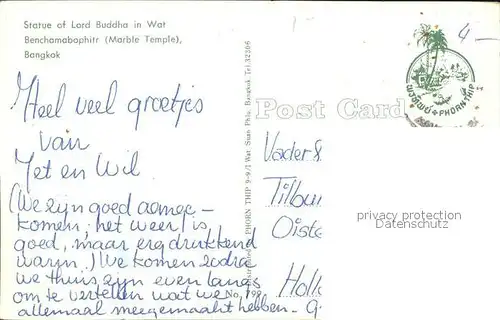 Statue of Lord Buddha in Wat
Benchamabophitr (Marble Temple),
Bangkok
Heel veel groetjes
van
Jet en Wil
(We zijn goed aange-
komen; het weer is
goed, maar erg drukkend
warm.) We komen zodra
we thuis zijn even langs
om te vertellen wat we
allemaal meegemaakt hebben. G
PHORN THIP 9-9/1 Wat Suan Phlu Bangkok Tel. 32506
No. 799
Post Card
4 -
1 -
ผ่องทิพย์ PHORN THIP
Vader &
Tilbur
Oiste
Holl
privacy protection
Datenschutz